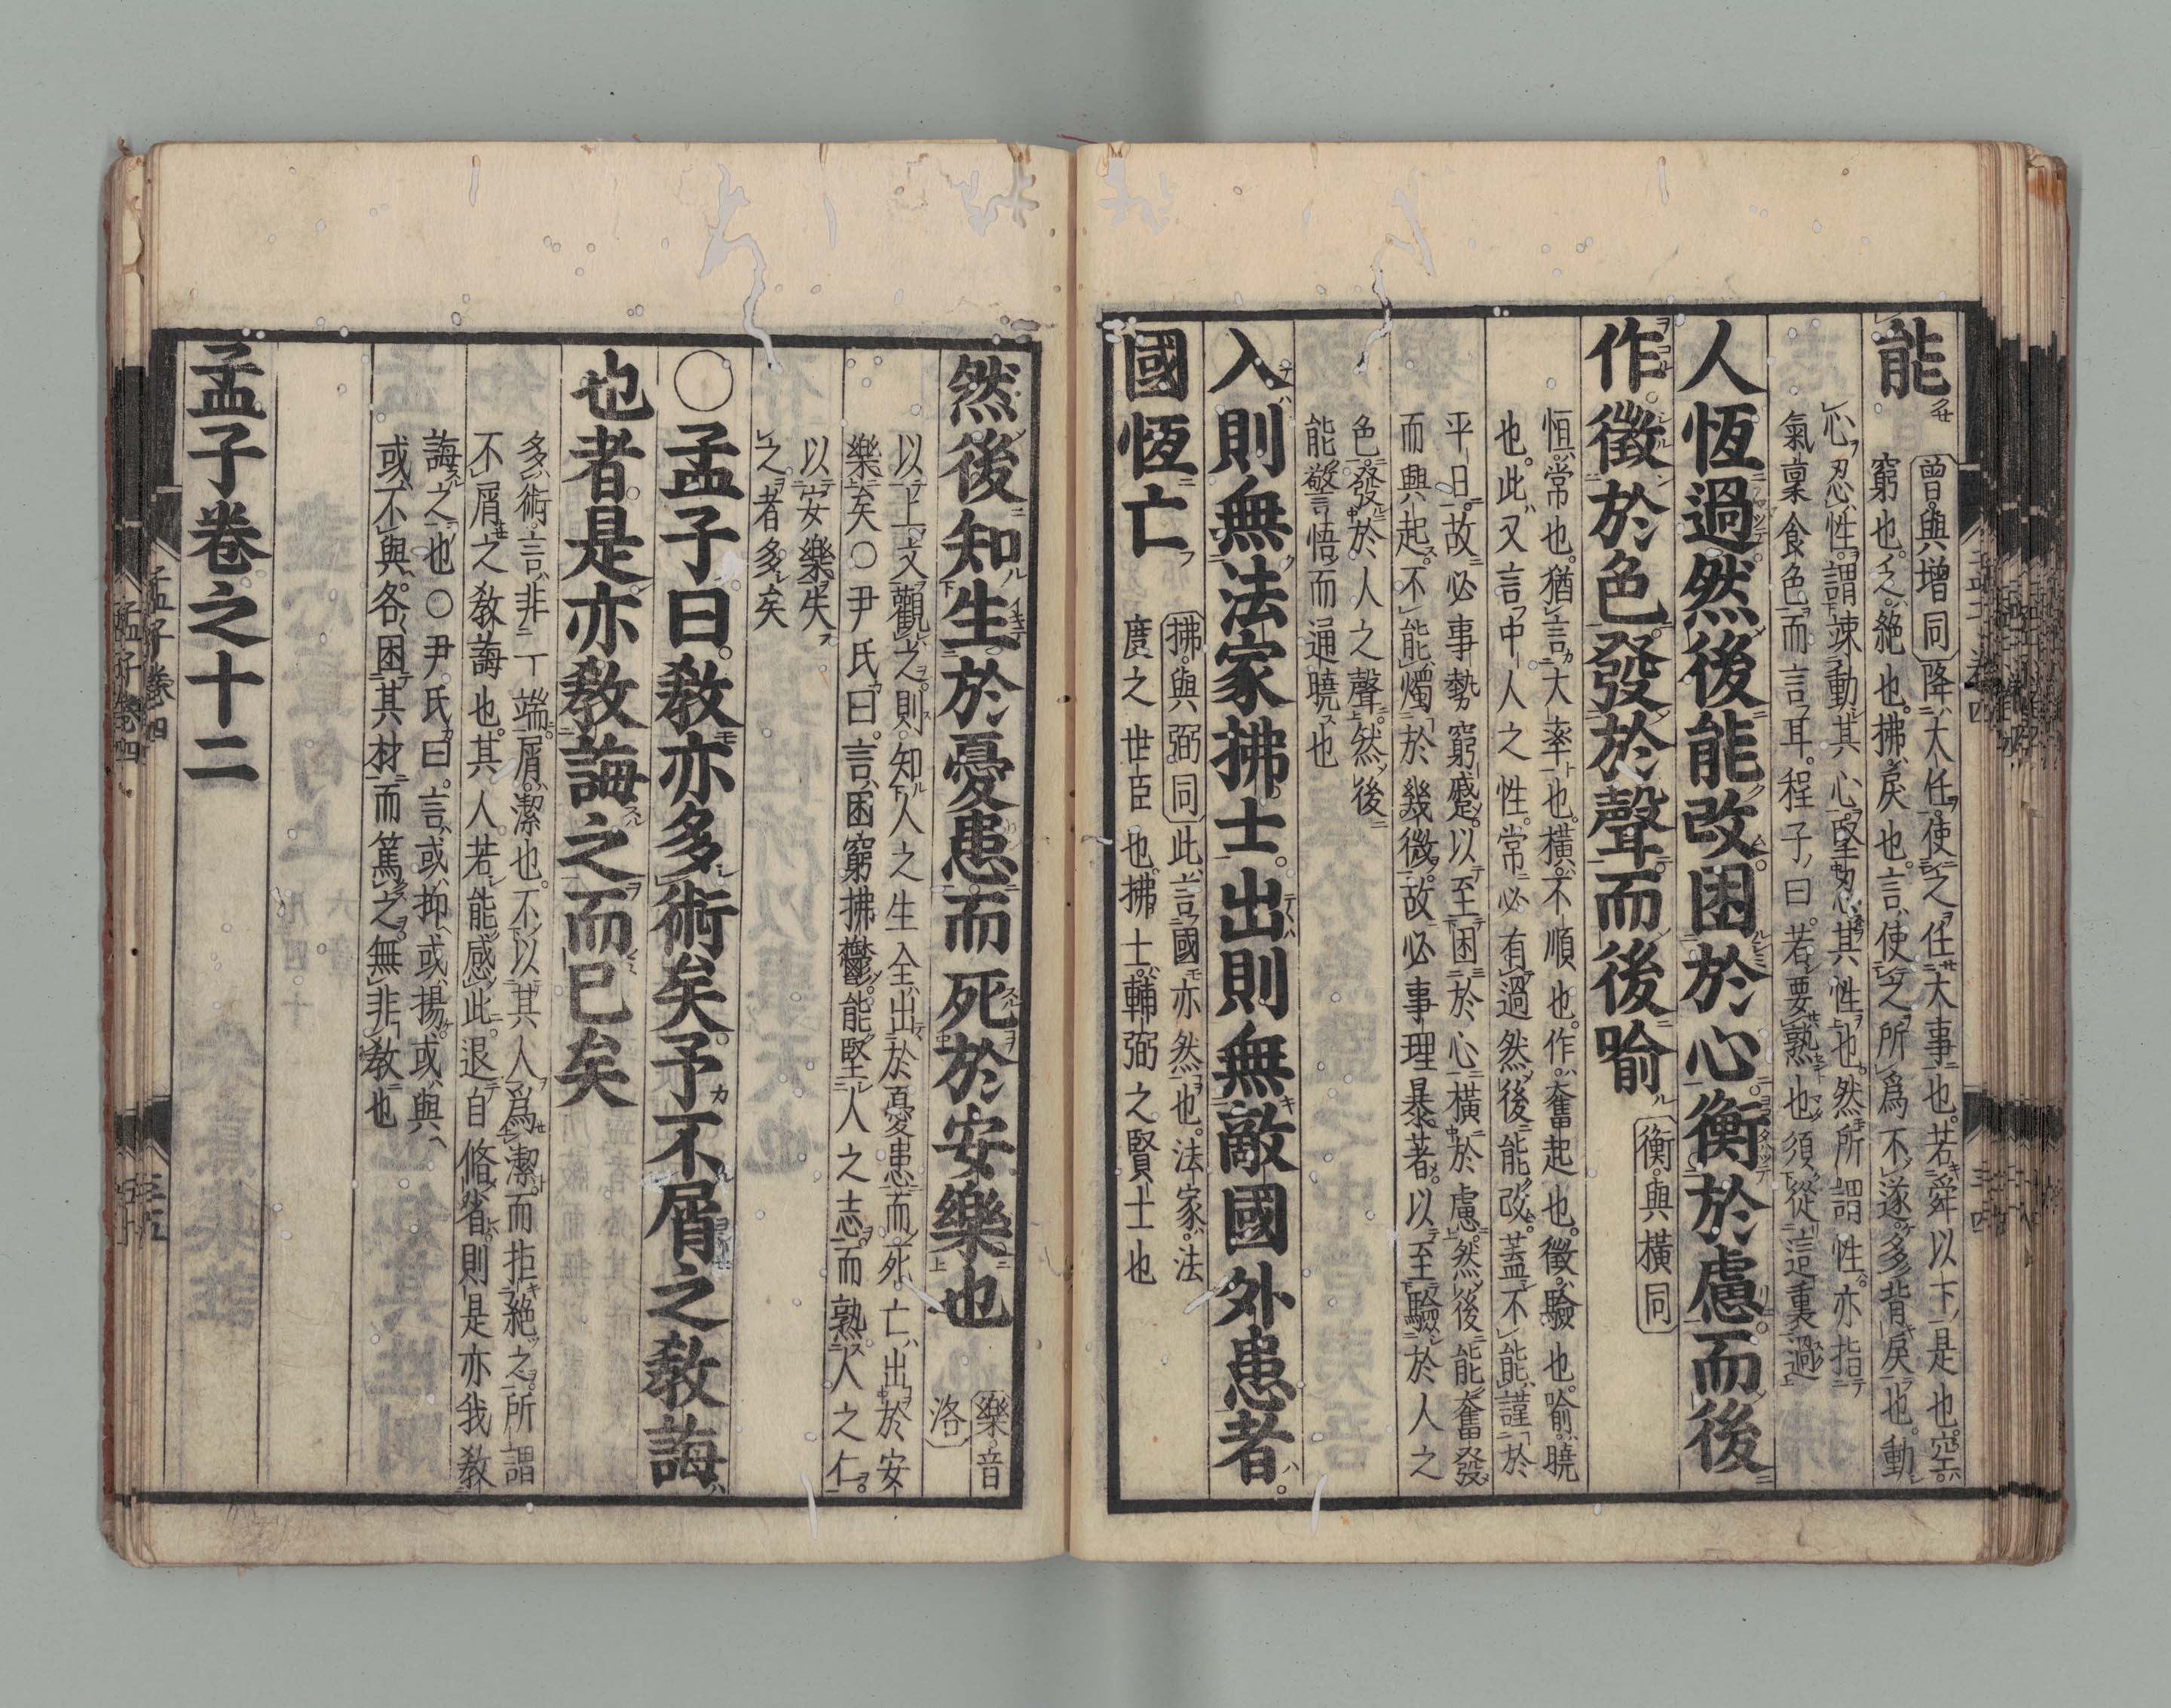 能
曾與增同降大任使之任大事也若舜以下是也空
窮也乏絶也拂戾也言使之所爲不遂多背戾也動
心忍性謂竦動其心堅忍其性也然所謂性亦指
氣稟食色而言耳程子曰若要熟也須從這裏過
人恆過然後能改困於心衡於慮而後
作徵於色發於聲而後喻
衡與橫同
恒常也猶言大率也橫不順也作奮起也徵驗也喻曉
也此又言中人之性常必有過然後能改蓋不能謹於
平日故必事勢窮蹙以至困於心橫於慮然後能奮發
而興起不能燭於幾微故必事理暴著以至驗於人之
色發於人之聲然後
能警悟而通曉也
入則無法家拂士出則無敵國外患者
國恆亡
拂與弼同此言國亦然也法家法
度之世臣也拂士輔弼之賢士也
然後知生於憂患而死於安樂也
樂音
洛
以上文觀之則知人之生全出於憂患而死亡出於安
樂矣○尹氏曰言困窮拂鬱能堅人之志而熟人之仁
以安樂失
之者多矣
○孟子曰敎亦多術矣予不屑之敎誨
也者是亦敎誨之而已矣
多術言非一端屑潔也不以其人爲潔而拒絶之所謂
不屑之敎誨也其人若能感此退自脩省則是亦我敎
誨之也○尹氏曰言或抑或揚或與
或不與各因其材而篤之無非敎也
孟子卷之十二
孟子卷四